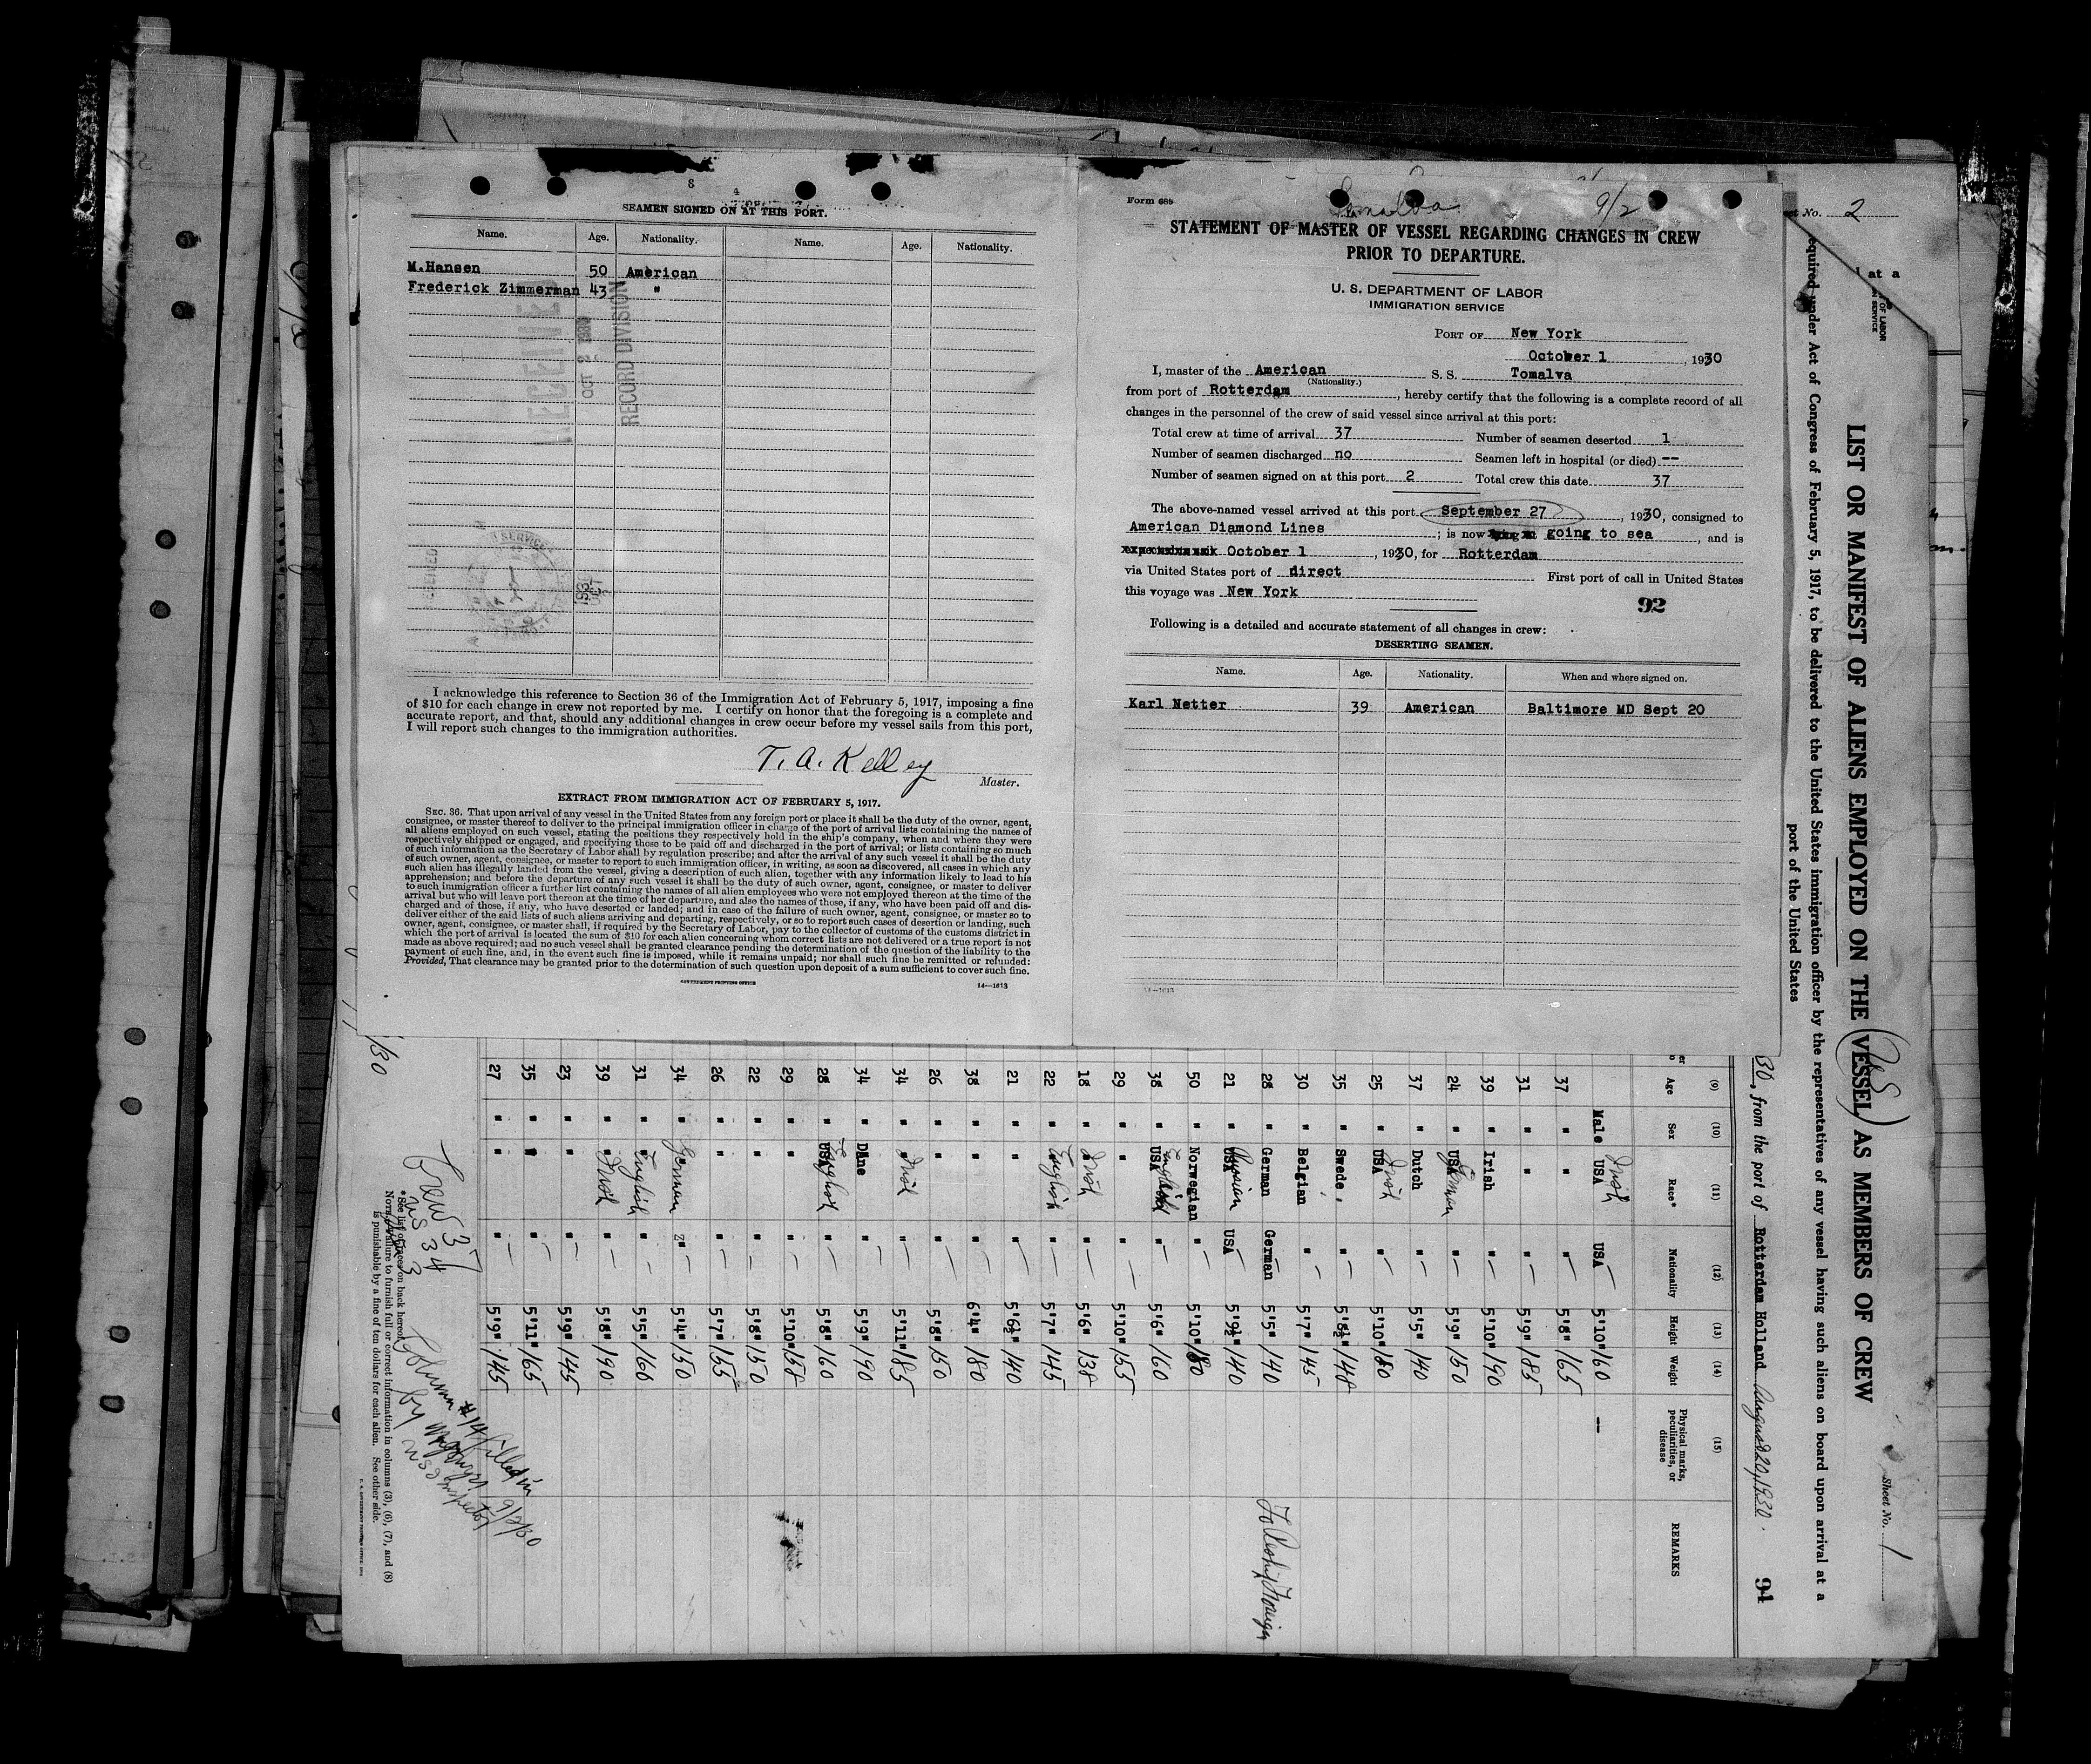 SEAMEN SIGNED ON AT THIS PORT.
Name. Age. Nationality. Name. Age. Nationality.
M.Hansen 50 American
Frederick Zimmerman 43 "
RECORD DIVISION
I acknowledge this reference to Section 36 of the Immigration Act of February 5, 1917, imposing a fine
of $10 for each change in crew not reported by me. I certify on honor that the foregoing is a complete and
accurate report, and that, should any additional changes in crew occur before my vessel sails from this port,
I will report such changes to the immigration authorities.
T. A. Kelley
Master.
EXTRACT FROM IMMIGRATION ACT OF FEBRUARY 5, 1917.
SEC. 36. That upon arrival of any vessel in the United States from any foreign port or place it shall be the duty of the owner, agent,
consignee, or master thereof to deliver to the principal immigration officer in charge of the port of arrival lists containing the names of
all aliens employed on such vessel, stating the positions they respectively hold in the ship's company, when and where they were
respectively shipped or engaged, and specifying those to be paid off and discharged in the port of arrival; or lists containing so much
of such information as the Secretary of Labor shall by regulation prescribe; and after the arrival of any such vessel it shall be the duty
of such owner, agent, consignee, or master to report to such immigration officer, in writing, as soon as discovered, all cases in which any
such alien has illegally landed from the vessel, giving a description of such alien, together with any information likely to lead to his
apprehension; and before the departure of any such vessel it shall be the duty of such owner, agent, consignee, or master to deliver
to such immigration officer a further list containing the names of all alien employees who were not employed thereon at the time of the
arrival but who will leave port thereon at the time of her departure, and also the names of those, if any, who have been paid off and dis-
charged and of those, if any, who have deserted or landed; and in case of the failure of such owner, agent, consignee, or master so to
deliver either of the said lists of such aliens arriving and departing, respectively, or so to report such cases of desertion or landing, such
owner, agent, consignee, or master shall, if required by the Secretary of Labor, pay to the collector of customs of the customs district in
which the port of arrival is located the sum of $10 for each alien concerning whom correct lists are not delivered or a true report is not
made as above required; and no such vessel shall be granted clearance pending the determination of the question of the liability to the
payment of such fine, and, in the event such fine is imposed, while it remains unpaid; nor shall such fine be remitted or refunded:
Provided, That clearance may be granted prior to the determination of such question upon deposit of a sum sufficient to cover such fine.
GOVERNMENT PRINTING OFFICE 14—1613
Form 689 9/2
STATEMENT OF MASTER OF VESSEL REGARDING CHANGES IN CREW
PRIOR TO DEPARTURE.
U. S. DEPARTMENT OF LABOR
IMMIGRATION SERVICE
PORT OF New York
October 1, 1930
I, master of the American S. S. Tomalva
(Nationality.)
from port of Rotterdam, hereby certify that the following is a complete record of all
changes in the personnel of the crew of said vessel since arrival at this port:
Total crew at time of arrival 37 Number of seamen deserted 1
Number of seamen discharged no Seamen left in hospital (or died) --
Number of seamen signed on at this port 2 Total crew this date 37
The above-named vessel arrived at this port September 27, 1930, consigned to
American Diamond Lines; is now going to sea, and is
October 1, 1930, for Rotterdam
via United States port of direct First port of call in United States
this voyage was New York
92
Following is a detailed and accurate statement of all changes in crew:
DESERTING SEAMEN.
Name. Age. Nationality. When and where signed on.
Karl Netter 39 American Baltimore MD Sept 20
14—1613
No. 2
Sheet No. 1
LIST OR MANIFEST OF ALIENS EMPLOYED ON THE VESSEL AS MEMBERS OF CREW
required under Act of Congress of February 5, 1917, to be delivered to the United States immigration officer by the representatives of any vessel having such aliens on board upon arrival at a
port of the United States
30, from the port of Rotterdam Holland August 20, 1930. 94
(9) (10) (11) (12) (13) (14) (15)
Age Sex Race* Nationality Height Weight Physical marks, peculiarities, or disease REMARKS
Male USA Irish USA 5'10" 160 --
37 " " " 5'8" 165
31 " " " 5'9" 185
39 " Irish " 5'10" 190
24 " USA German " 5'9" 150
37 " Dutch " 5'5" 140
25 " USA Irish " 5'10" 180
35 " Swede " 5'8½" 148
30 " Belgian " 5'7" 145
28 " German German 5'5" 140
21 " USA Russian USA 5'9½" 140
50 " Norwegian " 5'10" 180
38 " USA English " 5'6" 160
29 " " " 5'10" 155
18 " " Irish " 5'6" 138
22 " " English " 5'7" 145
21 " " " 5'6½" 140
38 " " " 6'4" 180
26 " " " 5'8" 150
34 " " Irish " 5'11" 185
34 " Dane " 5'9" 190
28 " USA English " 5'8" 160
29 " " " 5'10" 158
22 " " " 5'8" 150
26 " " " 5'7" 155
34 " " German " 5'4" 150
31 " " English " 5'5" 160
39 " " Irish " 5'8" 190
23 " " " 5'9" 145
35 " " " 5'11" 165
27 " " " 5'9" 145
Crew 37
US 34
3
Column #14 filled in
by
US Inspector 9/2/30
*See list of races on back hereof.
NOTE.—Failure to furnish full or correct information in columns (3), (6), (7), and (8)
is punishable by a fine of ten dollars for each alien. See other side.